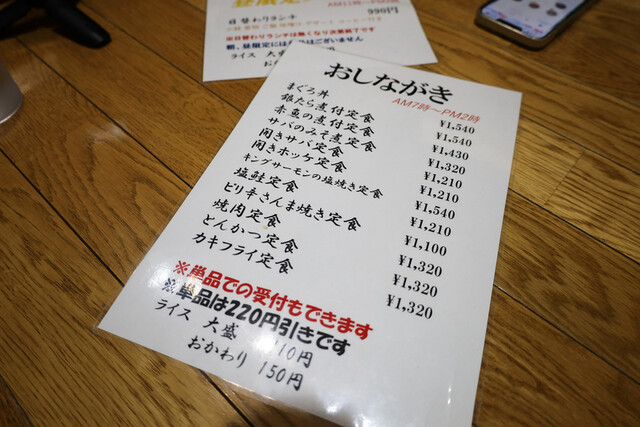 昼限定
日替わりランチ 990円
※日替わりランチは無くなり次第終了です
ライス 大
おかわ
おしながき
AM7時～PM2時
まぐろ丼 ¥1,540
銀たら煮付定食 ¥1,540
赤魚の煮付定食 ¥1,430
サバのみそ煮定食 ¥1,320
開きサバ定食 ¥1,210
開きホッケ定食 ¥1,210
キングサーモンの塩焼き定食 ¥1,540
塩鮭定食 ¥1,210
ピリ辛さんま焼き定食 ¥1,100
焼肉定食 ¥1,320
とんかつ定食 ¥1,320
カキフライ定食 ¥1,320
※単品での受付もできます
※単品は220円引きです
ライス 大盛 10円
おかわり 150円